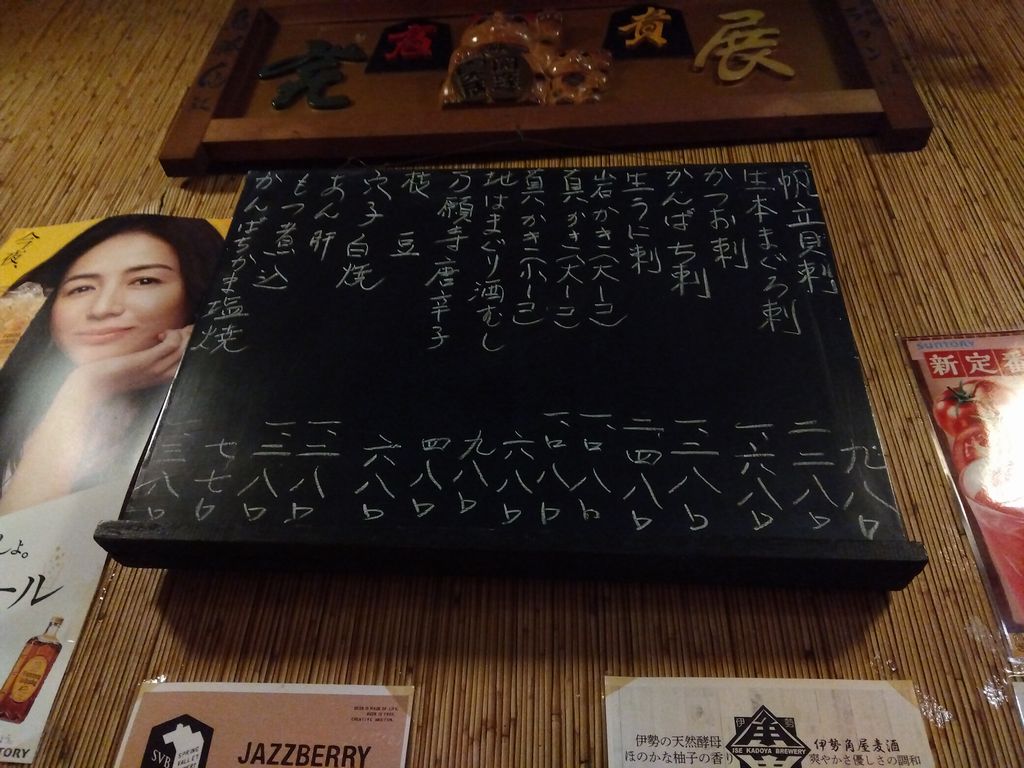 発
喜
貴
展
帆立貝刺 九八〇
生本まぐろ刺 二、二八〇
かつお刺 一、六八〇
かんぱち刺 一、二八〇
生うに刺 二、四八〇
岩かき(大一コ) 一、〇八〇
真かき(大一コ) 一、〇八〇
真かき(小一コ) 六八〇
地はまぐり酒むし 九八〇
万願寺唐辛子 四八〇
枝豆 六八〇
穴子白焼 一、二八〇
あん肝 一、二八〇
もつ煮込 七七〇
かんぱちかま塩焼 一、三八〇
今夜
しょ。
ール
TORY
SUNTORY
新定番
BEER IS MADE OF LIFE.
BEER IS FREE.
CREATIVE BREWING.
SVB
SPRING VALLEY
JAZZBERRY
伊勢の天然酵母
ほのかな柚子の香り
伊勢
角
ISE KADOYA BREWERY
伊勢角屋麦酒
爽やかさ優しさの調和